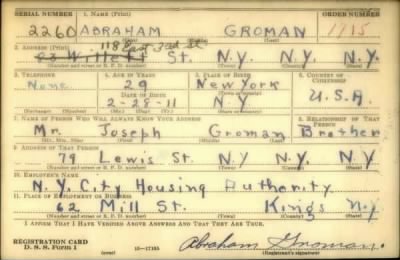 SERIAL NUMBER 1. NAME (Print) ORDER NUMBER
2260 ABRAHAM GROMAN 1915
2. ADDRESS (Print) 118 East 3rd St
Willett St. N.Y. N.Y. N.Y.
(Number and street or R. F. D. number) (Town) (County) (State)
3. TELEPHONE 4. AGE IN YEARS 5. PLACE OF BIRTH 6. COUNTRY OF CITIZENSHIP
None 29 New York
DATE OF BIRTH (Town or county) U.S.A.
2-28-11 N Y
(Exchange) (Number) (Mo.) (Day) (Yr.) (State or country)
7. NAME OF PERSON WHO WILL ALWAYS KNOW YOUR ADDRESS 8. RELATIONSHIP OF THAT PERSON
Mr. Joseph Groman Brother
(Mr., Mrs., Miss) (First) (Middle) (Last)
9. ADDRESS OF THAT PERSON
79 Lewis St. N Y N.Y. N.Y
(Number and street or R. F. D. number) (Town) (County) (State)
10. EMPLOYER'S NAME
N.Y. City Housing Authority
11. PLACE OF EMPLOYMENT OR BUSINESS
62 Mill St. Kings N.Y
(Number and street or R. F. D. number) (Town) (County) (State)
I AFFIRM THAT I HAVE VERIFIED ABOVE ANSWERS AND THAT THEY ARE TRUE.
REGISTRATION CARD
D. S. S. Form 1 (over) 16-17105 Abraham Groman
(Registrant's signature)